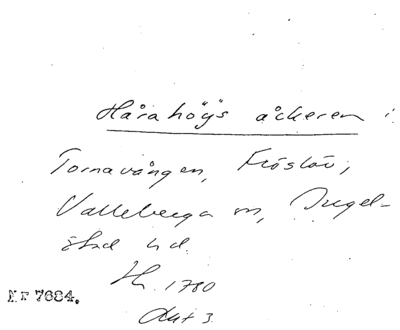 Hårahöÿs åckeren i
Tornavången, Fröslöv,
Valleberga sn, Ingel-
stad hd.
Lk. 1780
Akt 3
Nr 7684.